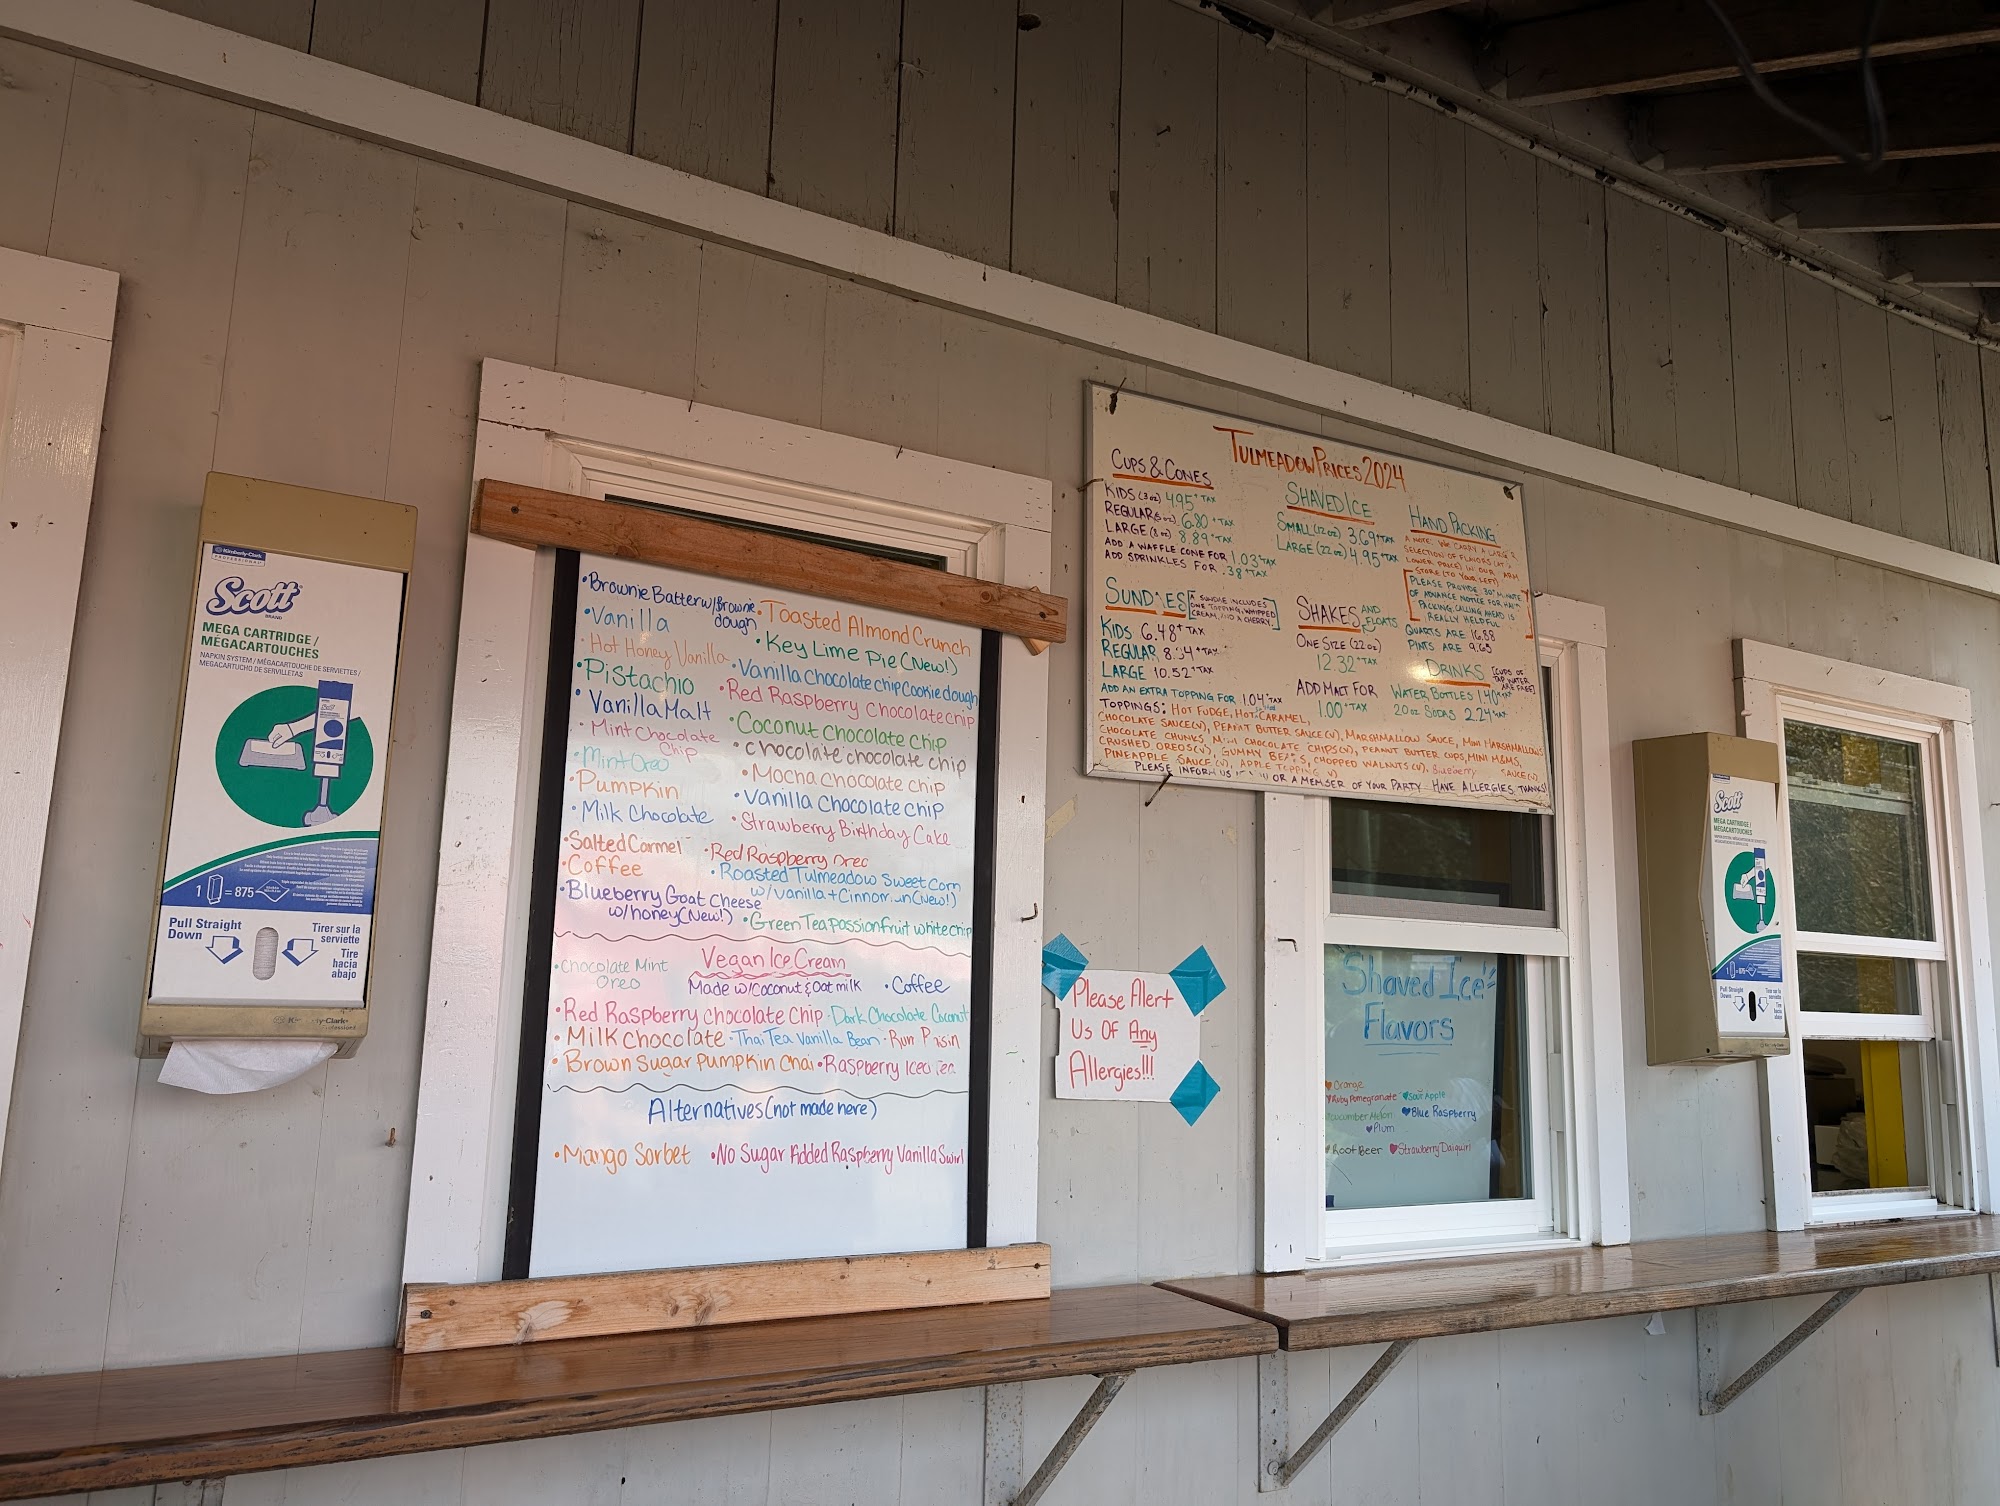 Kimberly-Clark
PROFESSIONAL
Scott
BRAND
MEGA CARTRIDGE /
MÉGACARTOUCHES
NAPKIN SYSTEM / MÉGACARTOUCHE DE SERVIETTES /
MEGACARTUCHO DE SERVILLETAS
1 = 875
Pull Straight
Down
Tirer sur la
serviette
Tire
hacia
abajo
• Brownie Batter w/Brownie
dough
• Vanilla
• Hot Honey Vanilla
• Pistachio
• Vanilla Malt
• Mint Chocolate
Chip
• Mint Oreo
• Pumpkin
• Milk Chocolate
• Salted Carmel
• Coffee
• Blueberry Goat Cheese
w/honey (New!)
• Toasted Almond Crunch
• Key Lime Pie (New!)
• Vanilla Chocolate chip Cookie dough
• Red Raspberry Chocolate chip
• Coconut Chocolate Chip
• chocolate chocolate chip
• Mocha chocolate chip
• Vanilla Chocolate chip
• Strawberry Birthday Cake
• Red Raspberry Oreo
• Roasted Tulmeadow Sweet Corn
w/vanilla + (New!)
• Green Tea passionfruit white chip
Vegan Ice Cream
Made w/Coconut & Oat milk
• Chocolate Mint
Oreo
• Coffee
• Red Raspberry chocolate chip • Dark Chocolate Coconut
• Milk chocolate • Thai Tea Vanilla Bean •
• Brown Sugar Pumpkin Chai • Raspberry Iced Tea
Alternatives (not made here)
• Mango Sorbet • No Sugar Added Raspberry Vanilla Swirl
Please Alert
Us Of Any
Allergies!!!
TULMEADOW PRICES 2024
CUPS & CONES
KIDS (3 oz) 4.95 + TAX
REGULAR (5 oz) 6.80 + TAX
LARGE (8 oz) 8.89 + TAX
ADD A WAFFLE CONE FOR 1.03 + TAX
ADD SPRINKLES FOR .38 + TAX
SHAVED ICE
SMALL (12 oz) 3.69 + TAX
LARGE (22 oz) 4.95 + TAX
HAND PACKING
A NOTE: WE CARRY A LARGER
SELECTION OF FLAVORS (AT A
LOWER PRICE) IN OUR FARM
STORE (TO YOUR LEFT)
PLEASE PROVIDE 30 MINUTE
OF ADVANCE NOTICE FOR HAND
PACKING. CALLING AHEAD IS
REALLY HELPFUL
QUARTS ARE 16.88
PINTS ARE 9.65
SUNDAES
A SUNDAE INCLUDES
ONE TOPPING, WHIPPED
CREAM, AND A CHERRY.
KIDS 6.48 + TAX
REGULAR + TAX
LARGE 10.52 + TAX
ADD AN EXTRA TOPPING FOR 1.04 + TAX
SHAKES AND
FLOATS
ONE SIZE (22 oz)
12.32 + TAX
ADD MALT FOR
1.00 + TAX
DRINKS [CUPS OF
TAP WATER
ARE FREE]
WATER BOTTLES 1.40 + TAX
20 oz SODAS 2.24 + TAX
TOPPINGS: HOT FUDGE, HOT CARAMEL,
CHOCOLATE SAUCE (V), PEANUT BUTTER SAUCE (V), MARSHMALLOW SAUCE, MINI MARSHMALLOWS
CHOCOLATE CHUNKS, MINI CHOCOLATE CHIPS (V), PEANUT BUTTER CUPS, MINI M&MS,
CRUSHED OREOS (V), GUMMY BEARS, CHOPPED WALNUTS (V), Blueberry SAUCE (V)
PINEAPPLE SAUCE (V), APPLE TOPPING (V)
PLEASE INFORM US IF YOU OR A MEMBER OF YOUR PARTY HAVE ALLERGIES. THANKS!
Shaved Ice
Flavors
Orange
Ruby Pomegranate
Sour Apple
Cucumber Melon
Blue Raspberry
Plum
Root Beer
Strawberry Daiquiri
Scott
MEGA CARTRIDGE /
MÉGACARTOUCHES
1 = 875
Pull Straight
Down